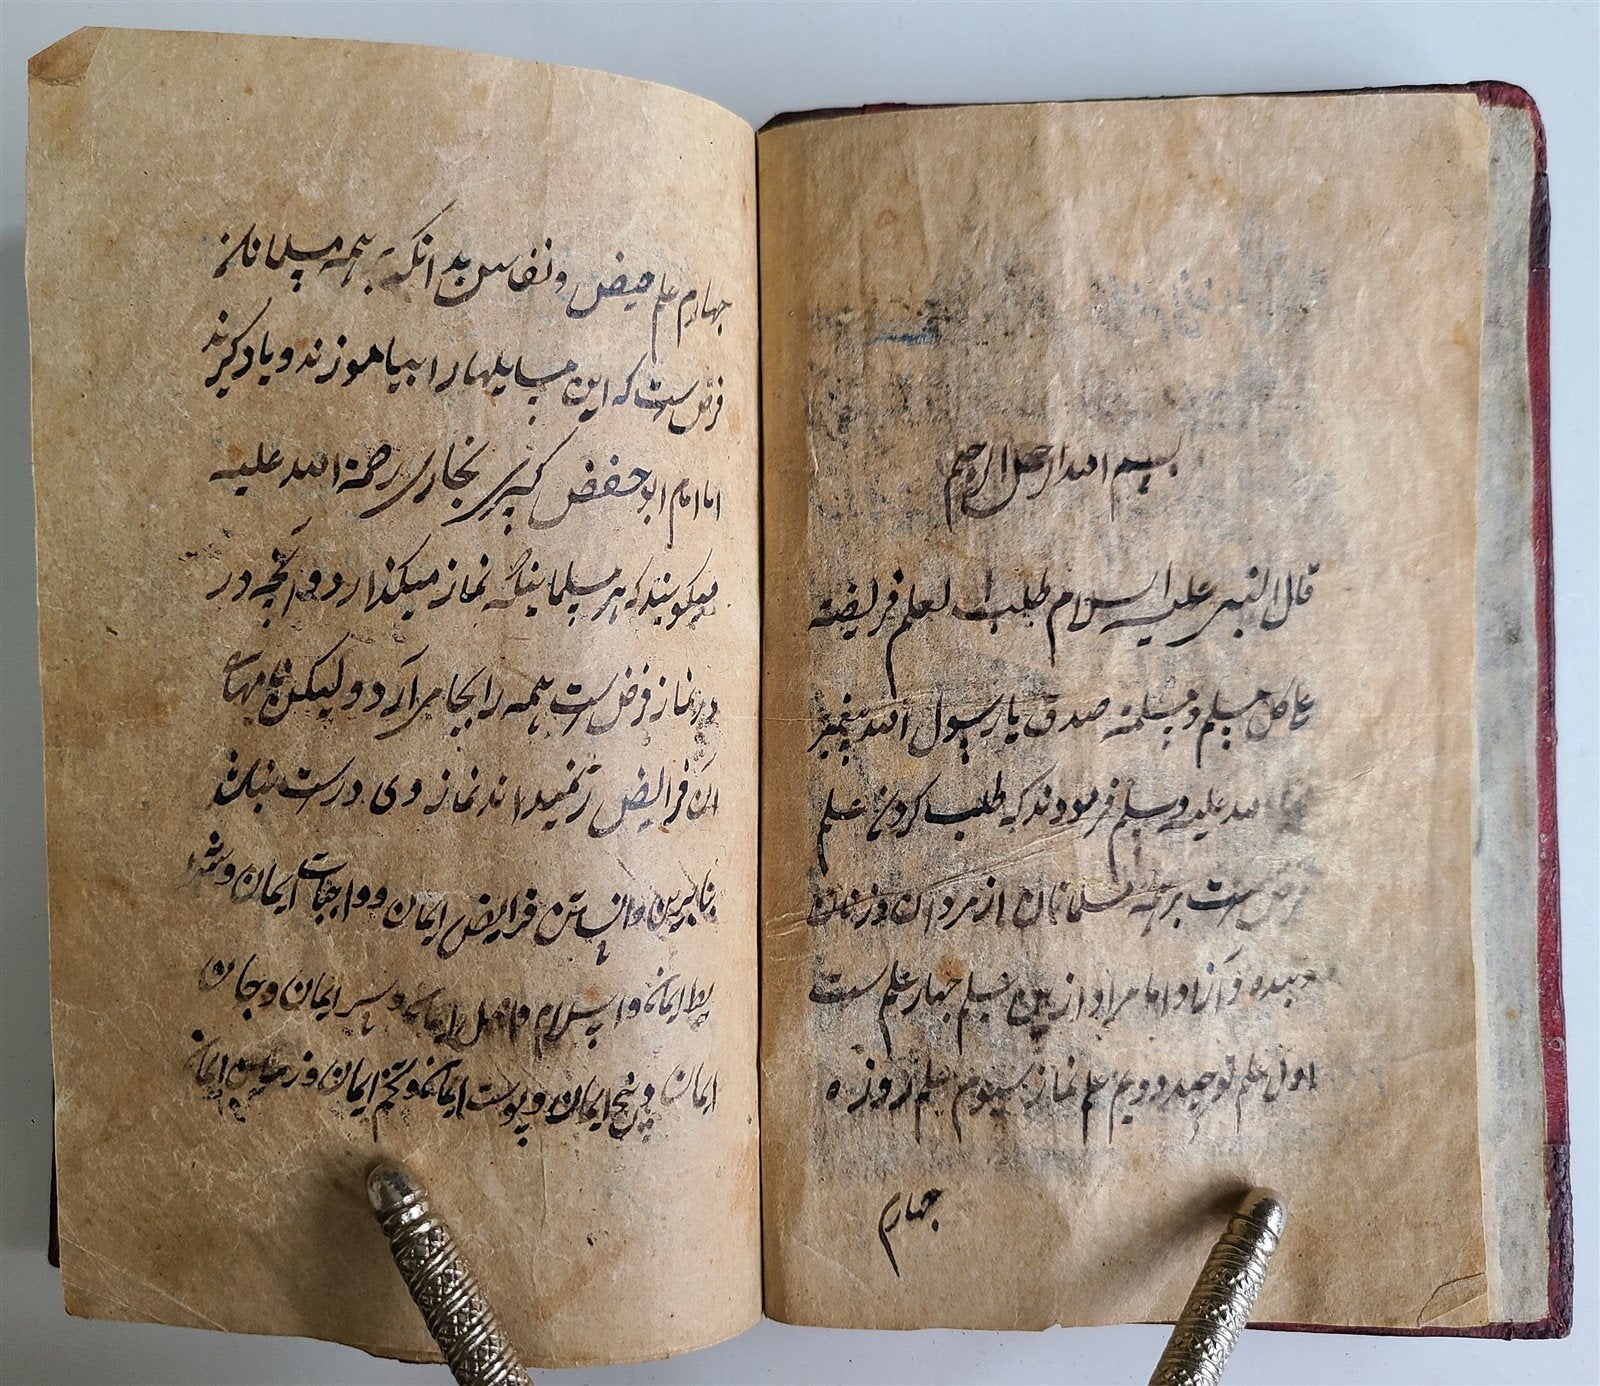 بسم الله الرحمن الرحیم
قال النبی علیه السلام طلب العلم فریضة
علی کل مسلم و مسلمة صدق یا رسول الله پیغمبر
الله علیه وسلم فرمودند که طلب کردن علم
فرض ست بر همه مسلمانان از مردان و زنان
و بنده و آزاد اما مراد ازین علم چهار علم ست
اول علم توحید دویم علم نماز سیوم علم روزه
چهارم
چهارم علم حیض و نفاس بدانکه بر همه مسلمانان
فرض ست که این مسایلها را بیاموزند و یاد گیرند
اما امام ابو حفض کبیر بخاری رحمة الله علیه
میگویند که هر مسلمانیکه نماز میکذارد و آنچه در
در نماز فرض ست همه را بجا می آرد ولیکن
آن فرایض را نمیداند نماز وی درست نباشد
بنابرین دانستن فرایض ایمان و واجبات ایمان و شرا
یط ایمان و اسلام و اصل ایمان و سر ایمان و جان
ایمان و بیخ ایمان و پوست ایمان و تخم ایمان و زمین ایمان